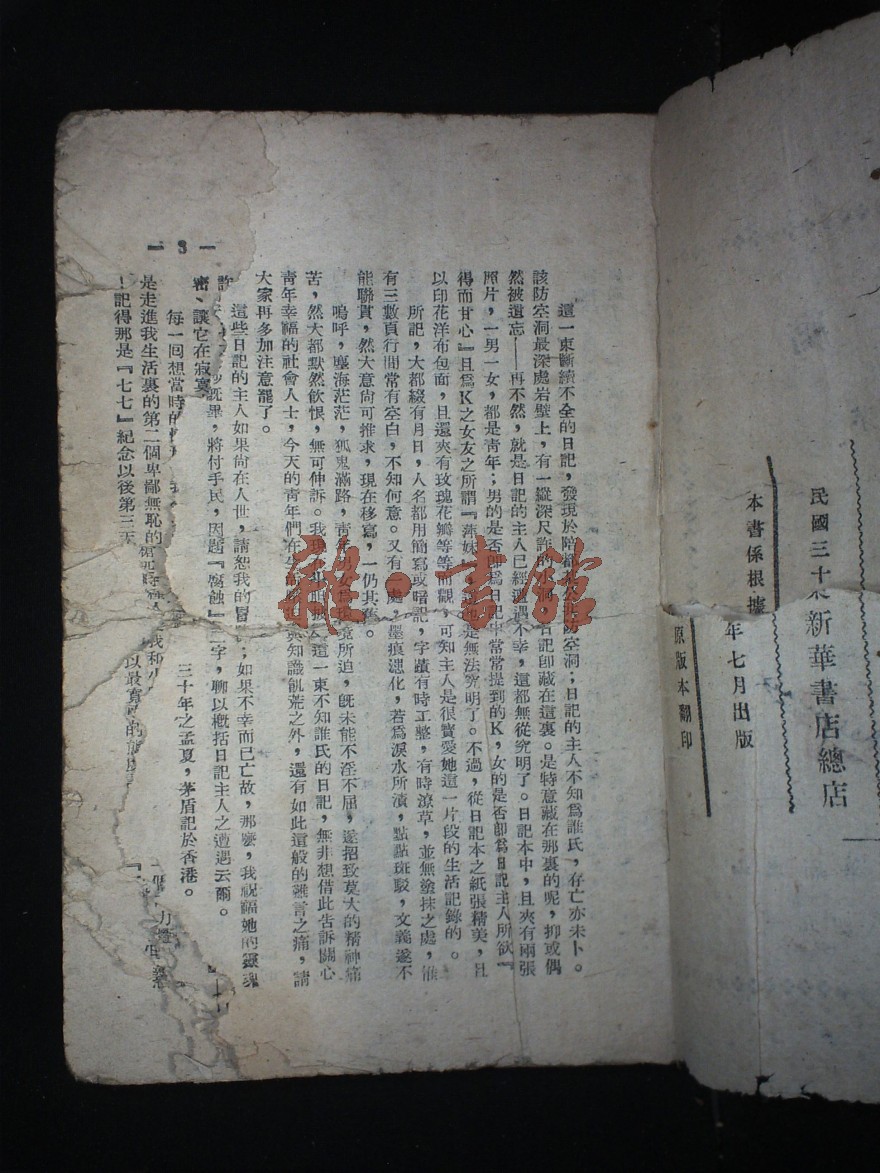 民國三十 新華書店總店
年七月出版
本書係根據 原版本翻印
這一束斷續不全的日記，發現於陪都 公共防空洞；日記的主人不知為誰氏，存亡亦未卜。
該防空洞最深處岩壁上，有一縱深尺許的小洞， 日記卽藏在這裏。是特意藏在那裏的呢，抑或偶
然被遺忘——再不然，就是日記的主人已經遭遇不幸，這都無從究明了。日記本中，且夾有兩張
照片，一男一女，都是青年；男的是否卽為日記中常常提到的K，女的是否卽為日記主人所欲『
得而甘心』且為K之女友之所謂『萍妹 是無法究明了。不過，從日記本之紙張精美，且
以印花洋布包面，且還夾有玫瑰花瓣等等而觀，可知主人是很寶愛她這一片段的生活記錄的。
所記，大都綴有月日，人名都用簡寫或暗記，字蹟有時工整，有時潦草，並無塗抹之處，惟
有三數頁行間常有空白，不知何意。又有 處，墨痕漶化，若為淚水所漬，點點斑駁，文義遂不
能聯貫，然大意尚可推求，現在移寫，一仍其舊。
嗚呼，塵海茫茫，狐鬼滿路，青年男女為環境所迫，旣未能不淫不屈，遂招致莫大的精神痛
苦，然大都默然飲恨，無可伸訴。我現 這一束不知誰氏的日記，無非想借此告訴關心
青年幸福的社會人士，今天的青年們在生 與知識飢荒之外，還有如此這般的難言之痛，請
大家再多加注意罷了。
這些日記的主人如果尚在人世，請恕我的冒 ；如果不幸而已亡故，那麼，我祝福她的靈魂
旣畢，將付手民，因題『腐蝕』二字，聊以概括日記主人之遭遇云爾。
三十年之孟夏，茅盾記於香港。
密、讓它在寂寞
每一回想當時的
是走進我生活裏的第二個卑鄙無恥的
！記得那是『七七』紀念以後第三天
— 3 —
雜·書館